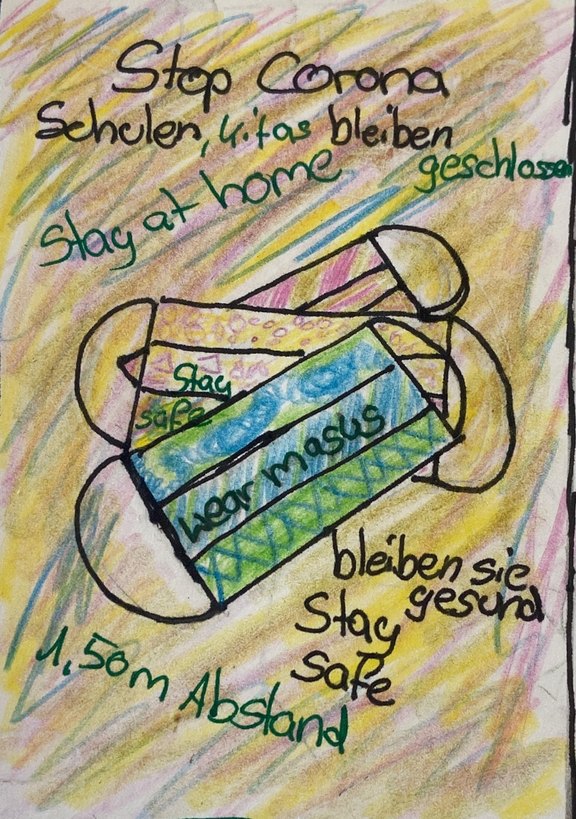 Stop Corona
Schulen, Kitas bleiben
geschlossen
Stay at home
Stay
safe
wear masus
bleiben sie
gesund
Stay
safe
1,50m Abstand